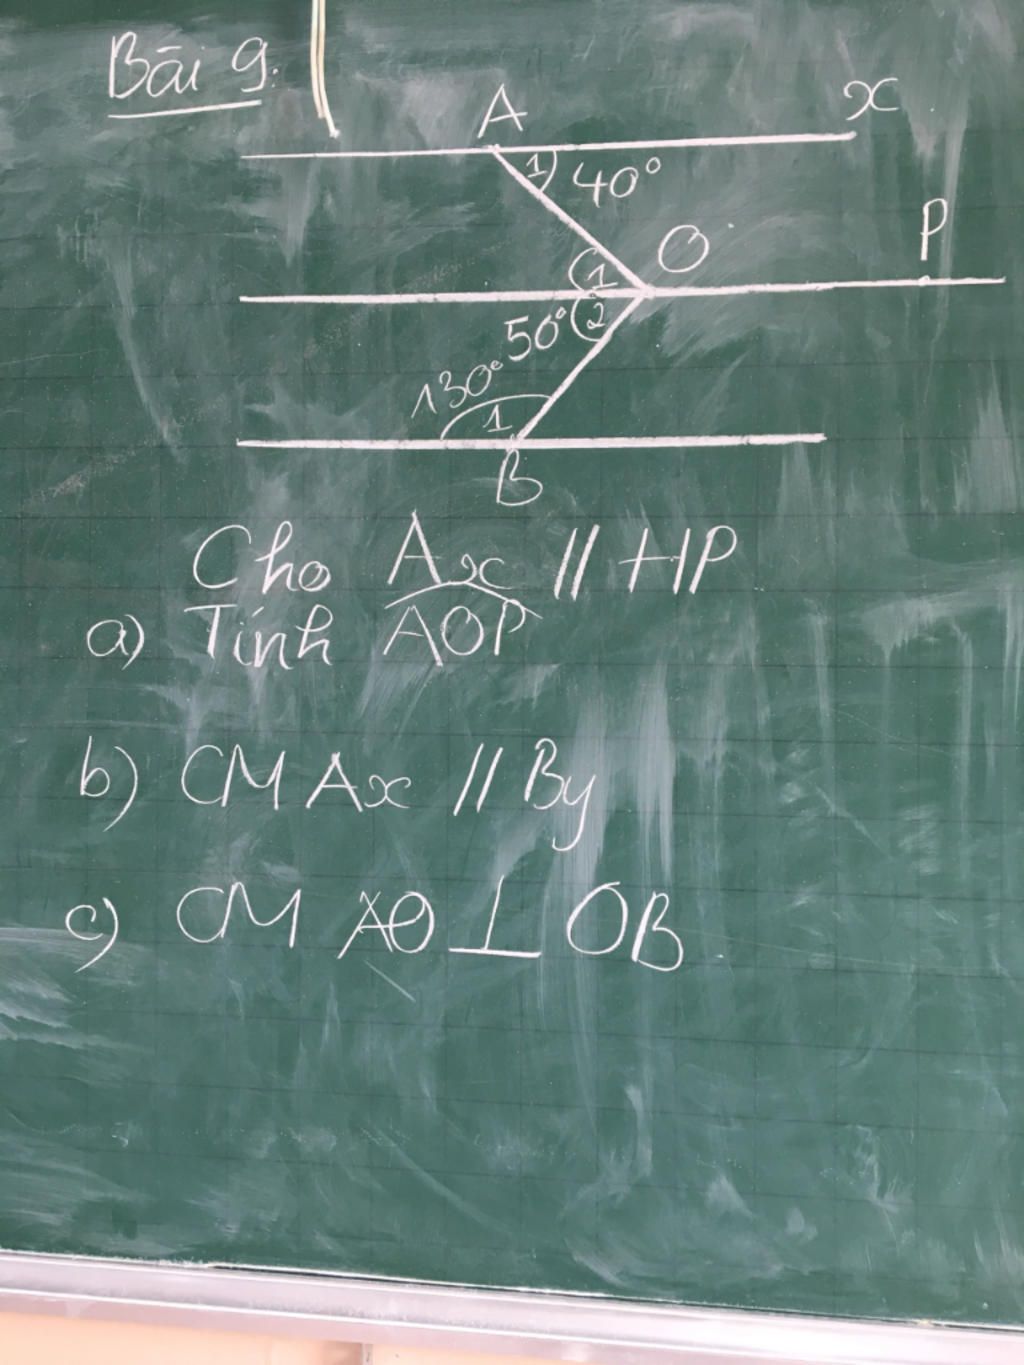 Bài 9.
A
x
1
40°
P
O
1
50°
2
130°
1
B
Cho Ax // HP
a) Tính AOP
b) CM Ax // By
c) CM AO ⊥ OB